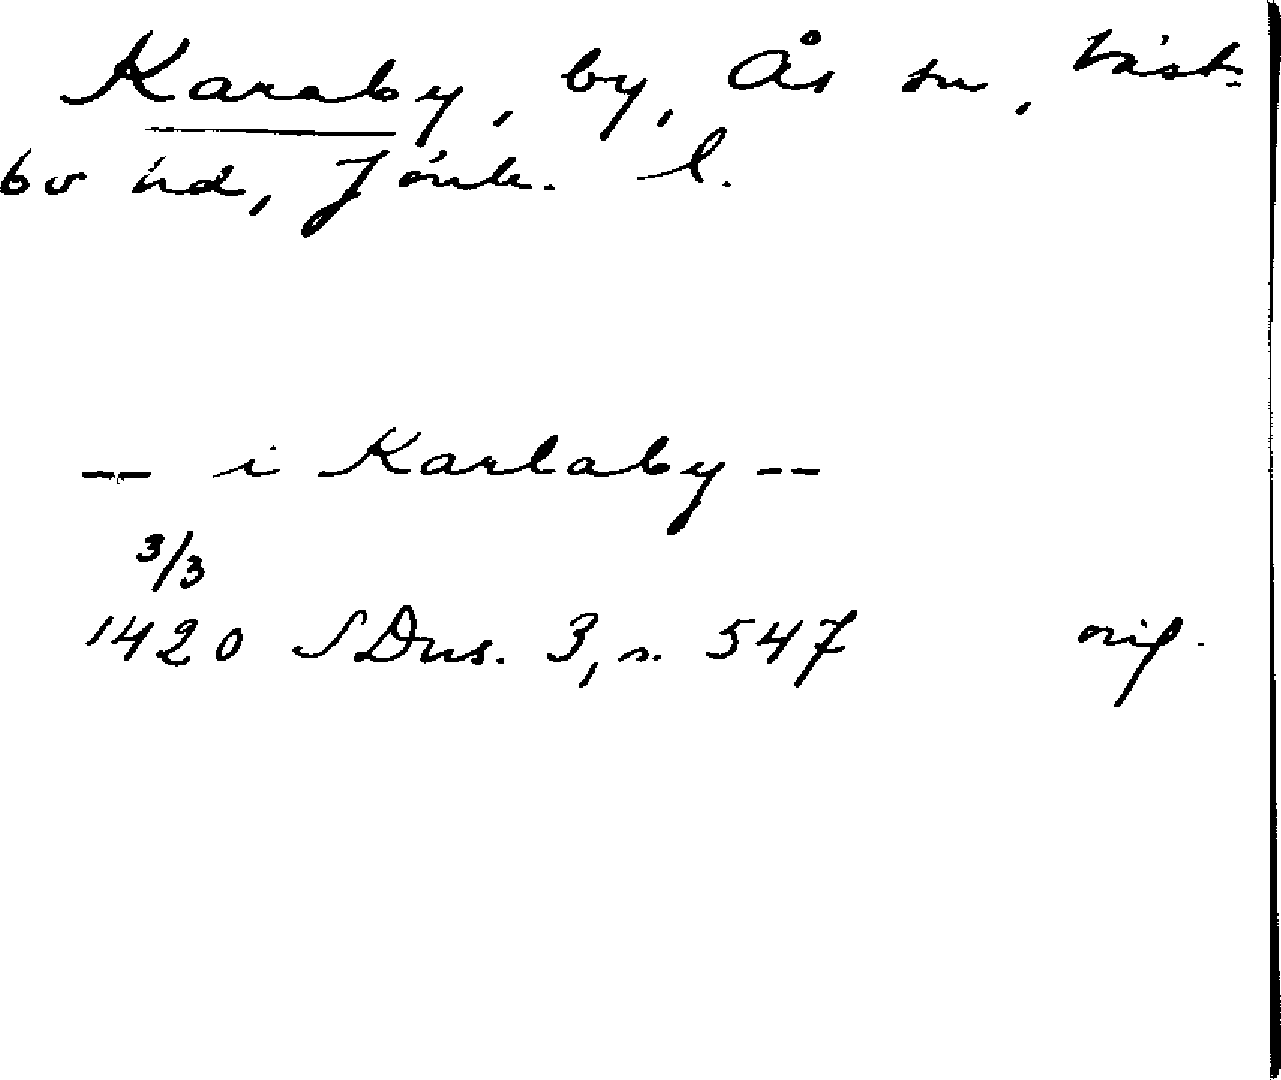 Karaby, by, Ås sn, Väst-
bo hd, Jönk. l.
-- i Karlaby --
3/3
1420 SDns. 3, s. 547 orig.